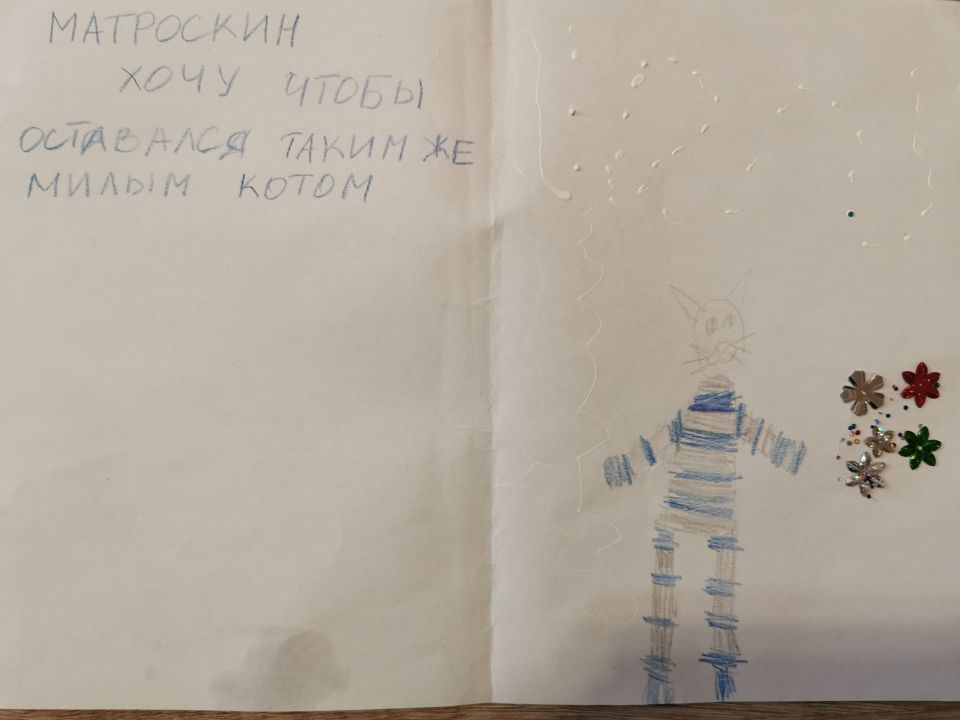 МАТРОСКИН
ХОЧУ ЧТОБЫ
ОСТАВАЛСЯ ТАКИМ ЖЕ
МИЛЫМ КОТОМ